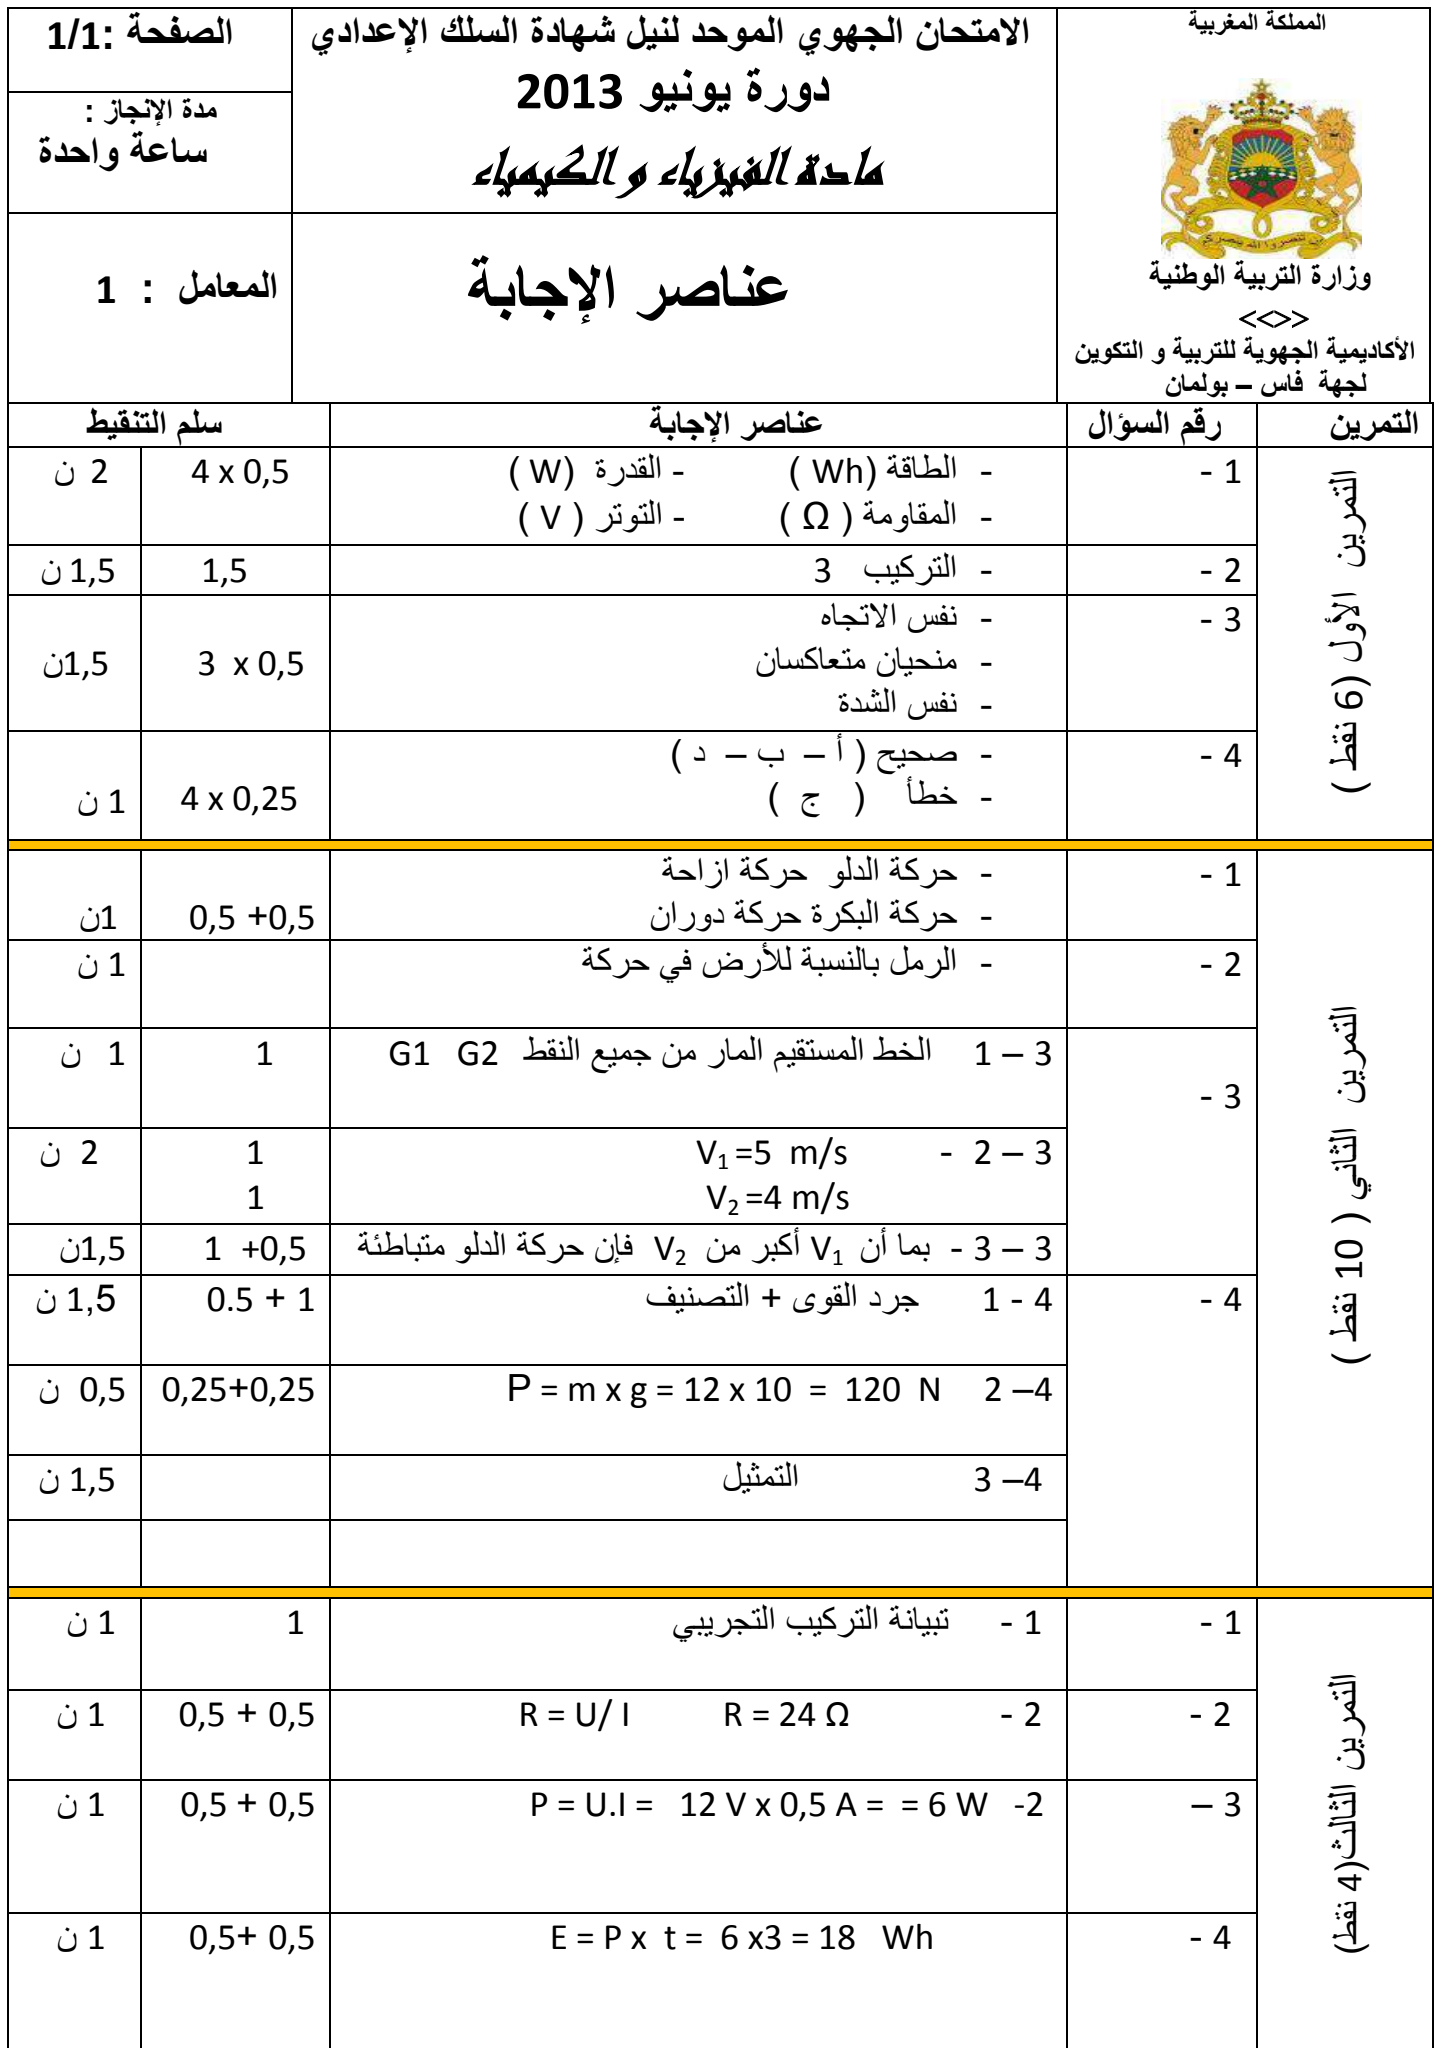 المملكة المغربية
وزارة التربية الوطنية
<<>>
الأكاديمية الجهوية للتربية و التكوين
لجهة فاس – بولمان
الامتحان الجهوي الموحد لنيل شهادة السلك الإعدادي
دورة يونيو 2013
مادة الفيزياء و الكيمياء
عناصر الإجابة
الصفحة :1/1
مدة الإنجاز :
ساعة واحدة
المعامل : 1
التمرين رقم السؤال عناصر الإجابة سلم التنقيط
التمرين الأول (6 نقط )
1 - - الطاقة (Wh ) - القدرة (W ) 4 x 0,5 2 ن
- المقاومة ( Ω ) - التوتر ( V )
2 - - التركيب 3 1,5 1,5 ن
3 - - نفس الاتجاه
- منحيان متعاكسان 3 x 0,5 1,5ن
- نفس الشدة
4 - - صحيح ( أ – ب – د )
- خطأ ( ج ) 4 x 0,25 1 ن
التمرين الثاني ( 10 نقط )
1 - - حركة الدلو حركة ازاحة
- حركة البكرة حركة دوران 0,5 +0,5 1ن
2 - - الرمل بالنسبة للأرض في حركة 1 ن
3 -
3 – 1 الخط المستقيم المار من جميع النقط G1 G2 1 1 ن
3 – 2 - V1 =5 m/s 1 2 ن
V2 =4 m/s 1
3 – 3 - بما أن V1 أكبر من V2 فإن حركة الدلو متباطئة 1 +0,5 1,5ن
4 - 4 - 1 جرد القوى + التصنيف 0.5 + 1 1,5 ن
4– 2 P = m x g = 12 x 10 = 120 N 0,25+0,25 0,5 ن
4– 3 التمثيل 1,5 ن
التمرين الثالث(4 نقط)
1 - 1 - تبيانة التركيب التجريبي 1 1 ن
2 - 2 - R = U/ I R = 24 Ω 0,5 + 0,5 1 ن
3 – 2- P = U.I = 12 V x 0,5 A = = 6 W 0,5 + 0,5 1 ن
4 - E = P x t = 6 x3 = 18 Wh 0,5+ 0,5 1 ن